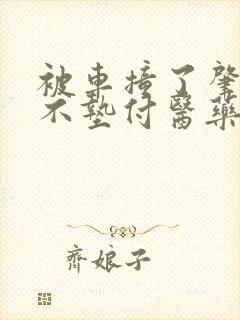 被車撞了肇
不墊付醫藥
齊娘子